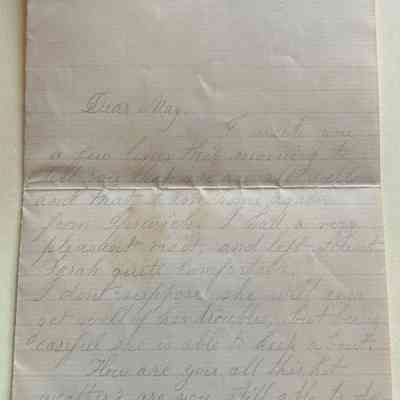 Dear May.
I write you
a few lines this morning to
tell you that we are all well
and that I am home again
from Ipswich. I had a very
pleasant visit, and left Aunt
Sarah quite comfortable.
I dont suppose she will ever
get well of her troubles, but being
careful she is able to keep about.
How are you all this hot
weather? are you still able to do